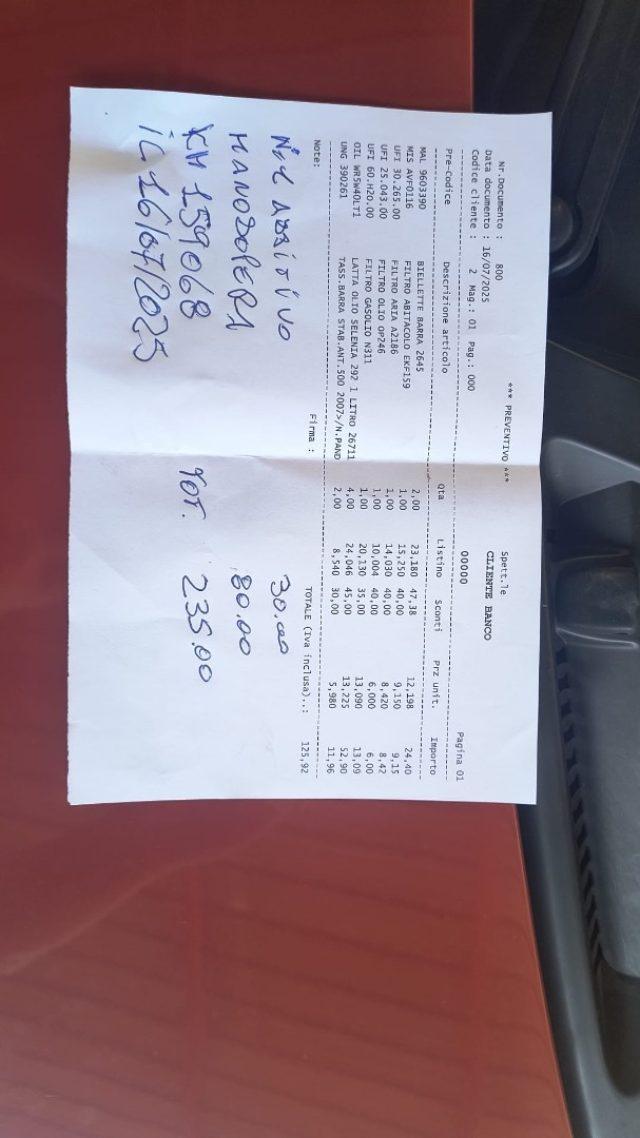 *** PREVENTIVO ***
Nr.Documento : 800 Spett.le
Data documento : 16/07/2025 CLIENTE BANCO
Codice cliente : 2 Mag.: 01 Pag.: 000 00000 Pagina 01
Pre-Codice Descrizione articolo Qta Listino Sconti Prz unit. Importo
MAL 9603390 BIELLETTE BARRA 2645 2,00 23,180 47,38 12,198 24,40
MIS AVF0116 FILTRO ABITACOLO EKF159 1,00 15,250 40,00 9,150 9,15
UFI 30.265.00 FILTRO ARIA A2186 1,00 14,030 40,00 8,420 8,42
UFI 25.043.00 FILTRO OLIO OP246 1,00 10,004 40,00 6,000 6,00
UFI 60.H2O.00 FILTRO GASOLIO N311 1,00 20,130 35,00 13,090 13,09
OIL WR5W40LT1 LATTA OLIO SELENIA 292 1 LITRO 26711 4,00 24,046 45,00 13,225 52,90
UNG 390261 TASS.BARRA STAB.ANT.500 2007>/N.PAND 2,00 8,540 30,00 5,980 11,96
TOTALE (Iva inclusa)..: 125,92
Note: Firma :
ADDITIVO 30.00
MANODOPERA 80.00
KM 159068 TOT. 235.00
iL 16/07/2025